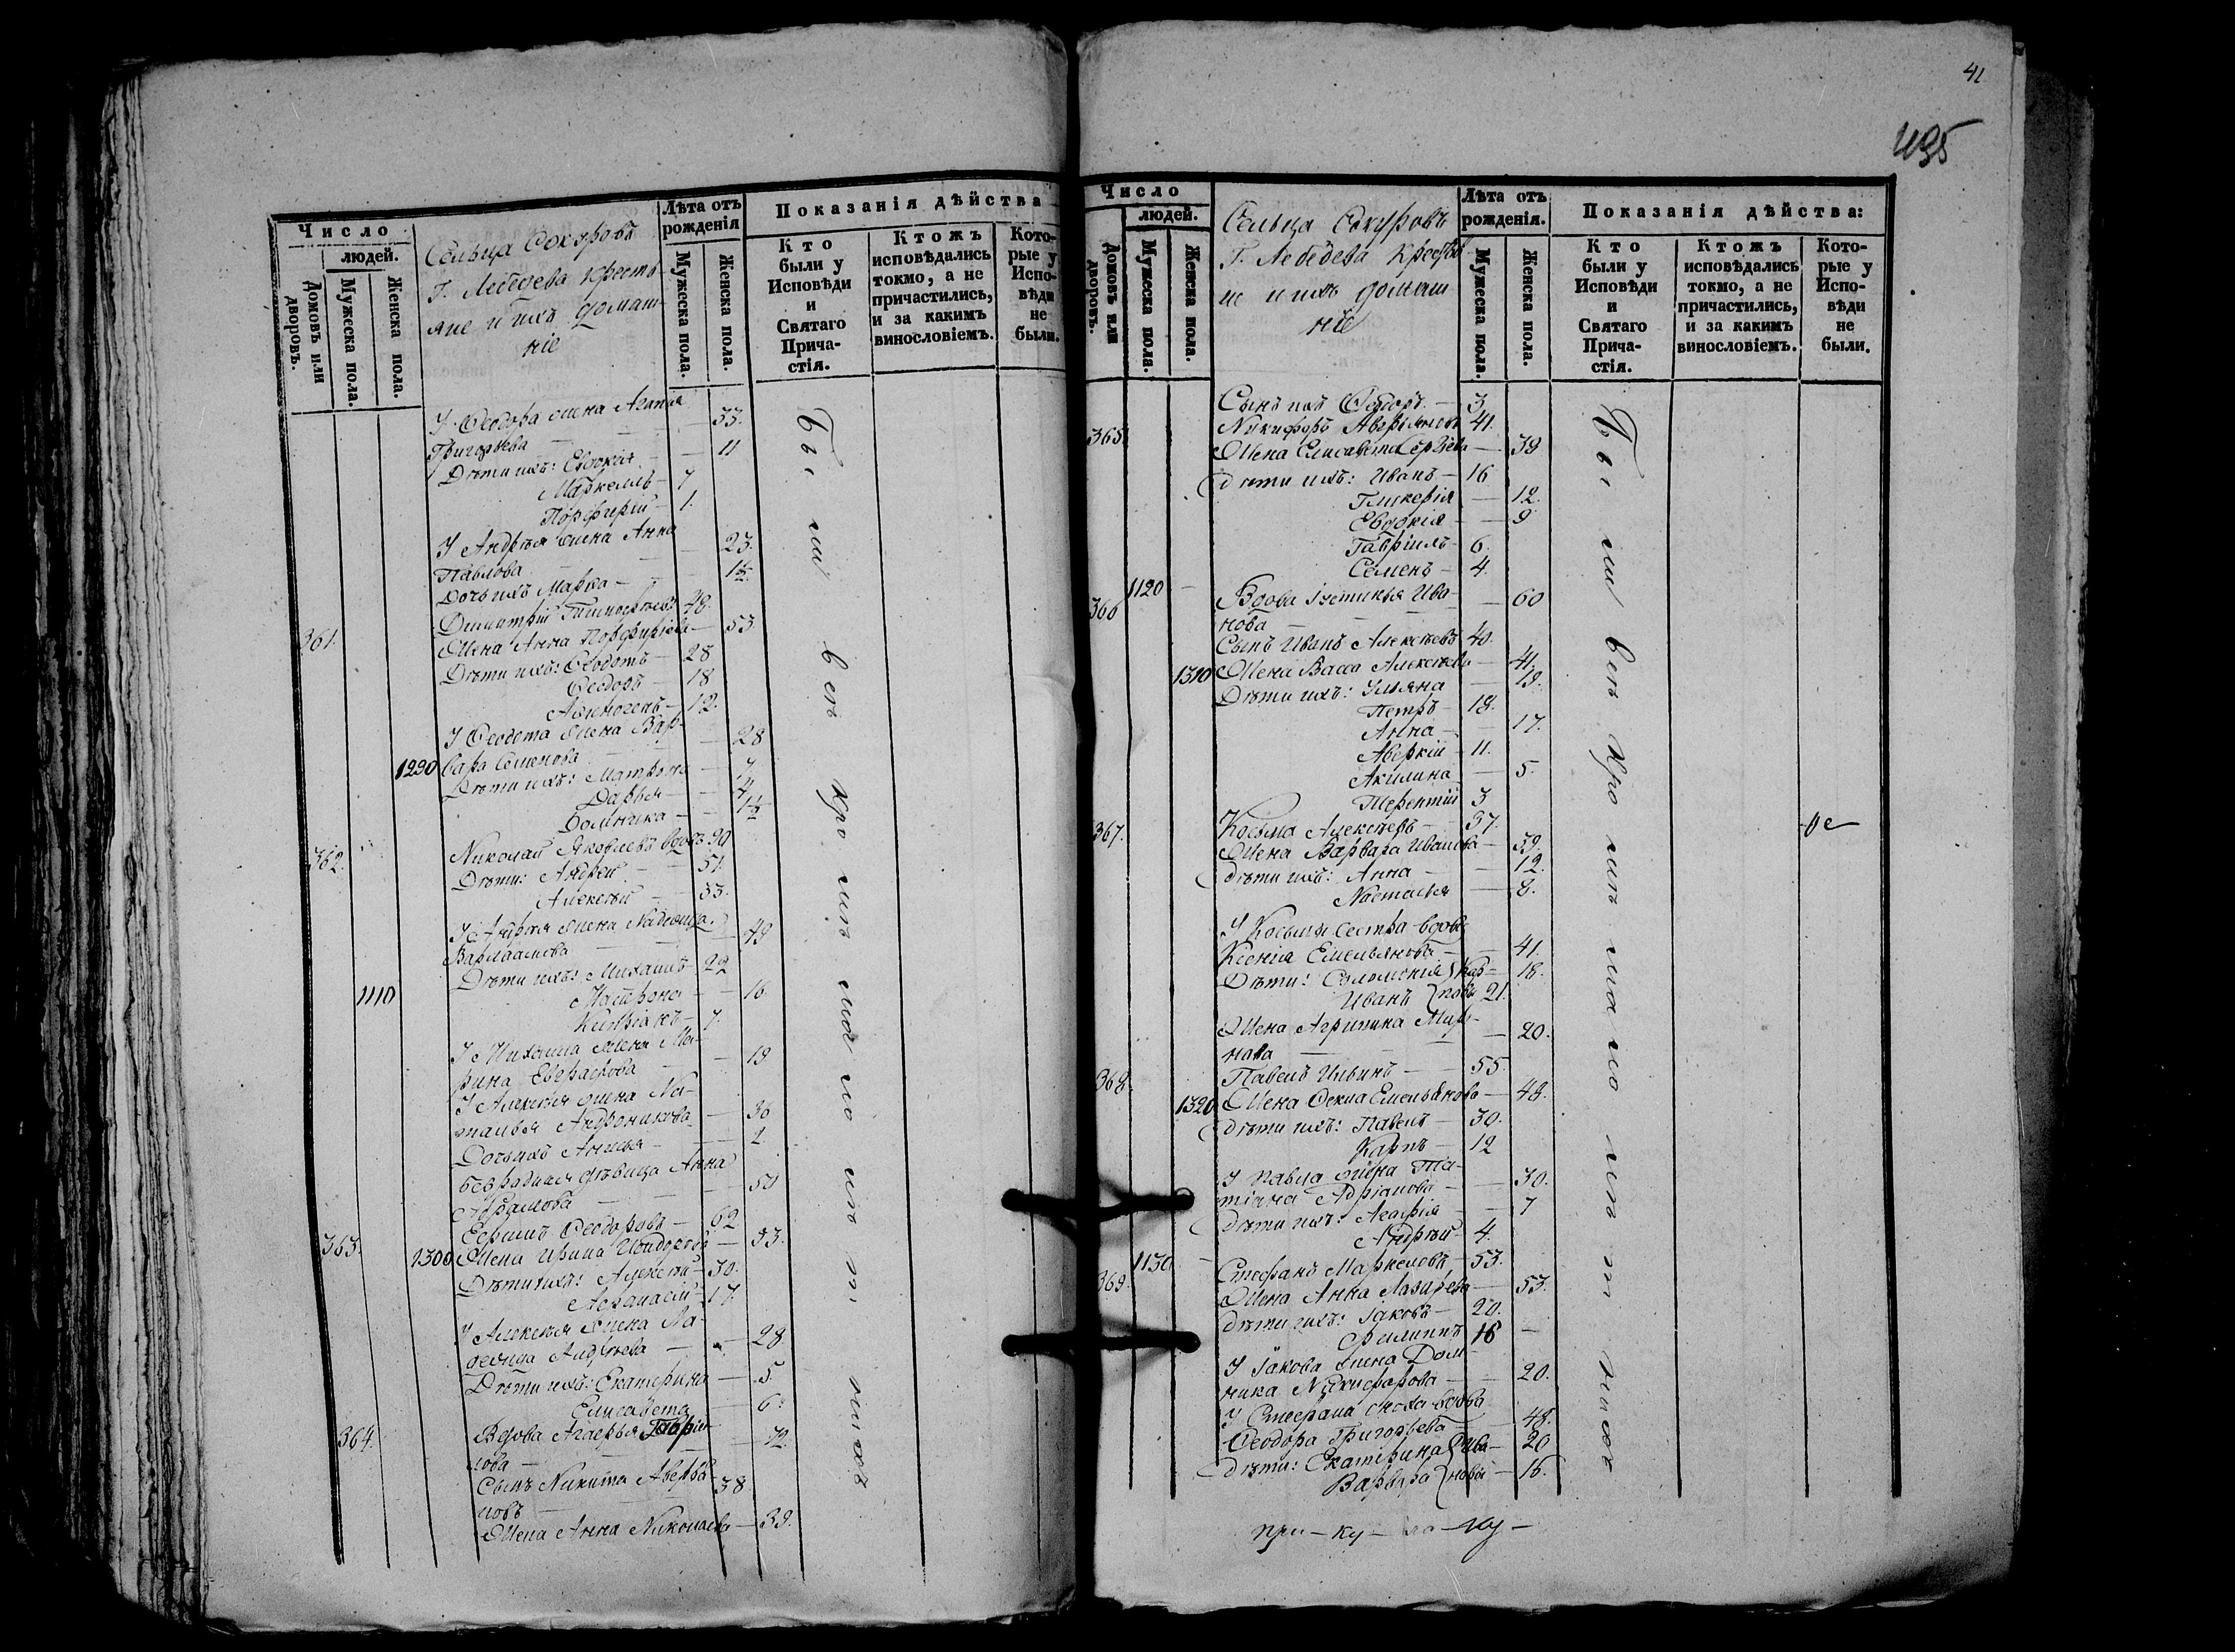 Число
людей.
Домовъ или дворовъ.
Мужеска пола.
Женска пола.
Сельца Сокуровъ
Г. Лебедева кресть
яне и ихъ домаш-
ніе
Лѣта отъ рожденія
Мужеска пола.
Женска пола.
Показанія дѣйства
Кто были у Исповѣди и Святаго Прича-стія.
Ктожъ исповѣдались токмо, а не причастились, и за какимъ винословіемъ.
Кото-рые у Испо-вѣди не были.
У Ѳеодора жена Агапія
Григорьева — 33.
Дѣти ихъ: Евдокія — 11
Маркеллъ — 7
Порфирій — 1.
У Андрея жена Анна
Павлова — 23.
Дочь ихъ Марѳа — 1½
361. Димитрій Тимоѳеевъ 48.
Жена Анна Порфиріева — 53.
Дѣти ихъ: Ѳеодотъ — 28
Ѳеодоръ — 18
Аѳиногенъ — 12.
У Ѳеодота жена Вар-
1290 вара Семенова — 28
Дѣти ихъ: Матрона — 7
Дарья — 4
Домника — 1½
362. Николай Яковлевъ вдовъ 90
Дѣти: Андрей — 51.
Алексѣй — 33.
У Андрея жена Надежда
Варлаамова — 49
Дѣти ихъ: Михаилъ — 22
1110 Матрона — 16.
Кипріанъ — 7.
У Михаила жена Ма-
рина Евграфова — 19
У Алексѣя жена На-
талья Андроникова — 36
Дочь ихъ Анисья — 2
безродная дѣвица Анна
Абрамова — 50
363. Ермилъ Ѳеодоровъ — 62
1300 Жена Ирина Исидорова — 53.
Дѣти ихъ: Алексѣй — 30.
Аѳанасій — 17.
У Алексѣя жена На-
дежда Андреева — 28
Дѣти ихъ: Екатерина — 5.
Елисавета — 6.
364. Вдова Агаѳья Гаврии-
лова — 72.
Сынъ Никита Аверья-
новъ — 38
Жена Анна Николаева — 39.
Были всѣ кро мѣ мало лѣт нихъ
41
495
Число
людей.
Домовъ или дворовъ.
Мужеска пола.
Женска пола.
Сельца Сокуровъ
Г. Лебедева Крестья
не и ихъ домаш
ніе
Лѣта отъ рожденія.
Мужеска пола.
Женска пола.
Показанія дѣйства:
Кто были у Исповѣди и Святаго Прича-стія.
Ктожъ исповѣдались токмо, а не причастились, и за какимъ винословіемъ.
Кото-рые у Испо-вѣди не были.
Сынъ ихъ Ѳеодоръ — 3
365. Никифоръ Аверіановъ 41.
Жена Елисавета Сергіева — 39
Дѣти ихъ: Иванъ — 16
Гликерія — 12.
Евдокія — 9
Гавріилъ — 6.
1120 Семенъ — 4.
366 Вдова Іустинья Ива-
нова — 60
Сынъ Иванъ Алексѣевъ 40.
1310 Жена Васса Алексѣева — 41.
Дѣти ихъ: Ульяна — 19.
Петръ — 18.
Анна — 17.
Аверкій — 11.
Акилина — 5.
Терентій 3
367. Косьма Алексѣевъ — 37.
Жена Варвара Иванова — 39.
Дѣти ихъ: Анна — 12.
Настасья — 8.
У Косьмы сестра вдова
Ксенія Емельянова — 41.
Дѣти: Соломонія } Кар- 18.
Иванъ } повы 21.
Жена Агрипина Миро-
нова — 20.
368. Павелъ Ильинъ — 55.
1320 Жена Ѳекла Емельянова — 48.
Дѣти ихъ: Павелъ — 30.
Карпъ — 12
У Павла жена Та-
тіана Адріанова — 30.
Дѣти ихъ: Агафія — 7
Андрей — 4.
1130 —
369. Стефанъ Маркеловъ — 53.
Жена Анна Лазарева — 53.
Дѣти ихъ: Іаковъ — 20.
Филиппъ 16 —
У Іакова жена Дом-
ника Никифорова — 20.
У Стефана сноха вдова
Ѳеодора Григорьева — 48.
Дѣти: Екатерина } Ива- 20
Варвара } новы — 16.
Были всѣ кро мѣ мало лѣт нихъ